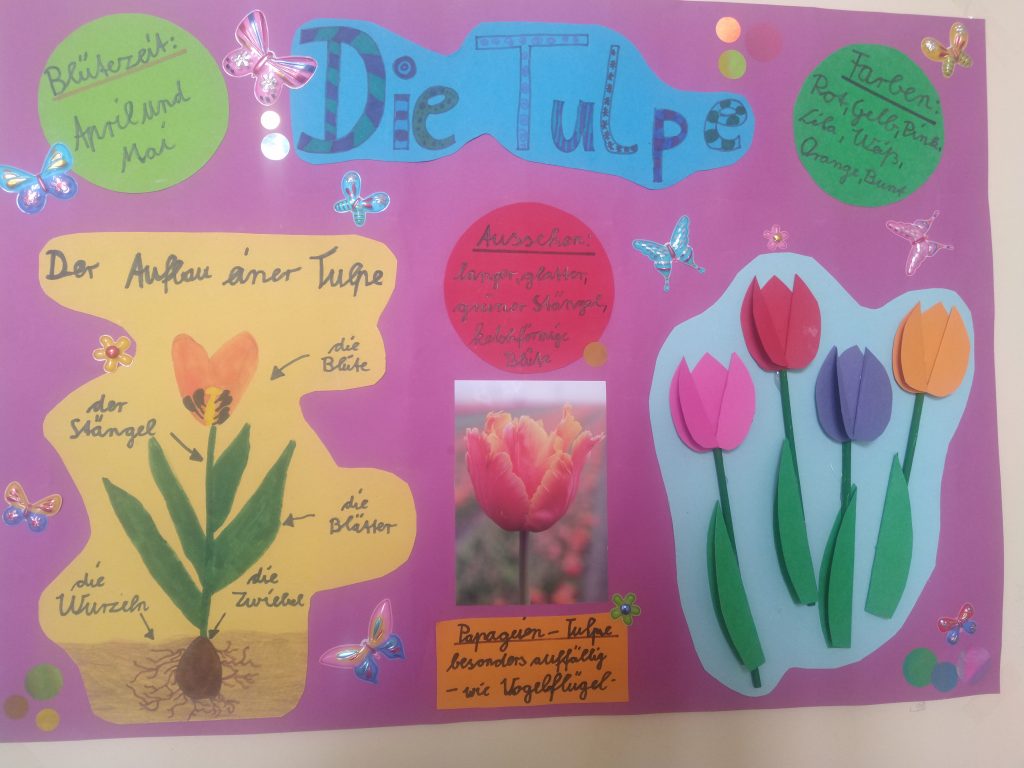 Die Tulpe
Blütezeit:
April und
Mai
Farben:
Rot, Gelb, Pink,
Lila, Weiß,
Orange, Bunt
Der Aufbau einer Tulpe
die
Blüte
der
Stängel
die
Blätter
die
Wurzeln
die
Zwiebel
Aussehen:
langer, glatter,
grüner Stängel,
kelchförmige
Blüte
Papageien-Tulpe
besonders auffällig
- wie Vogelflügel-